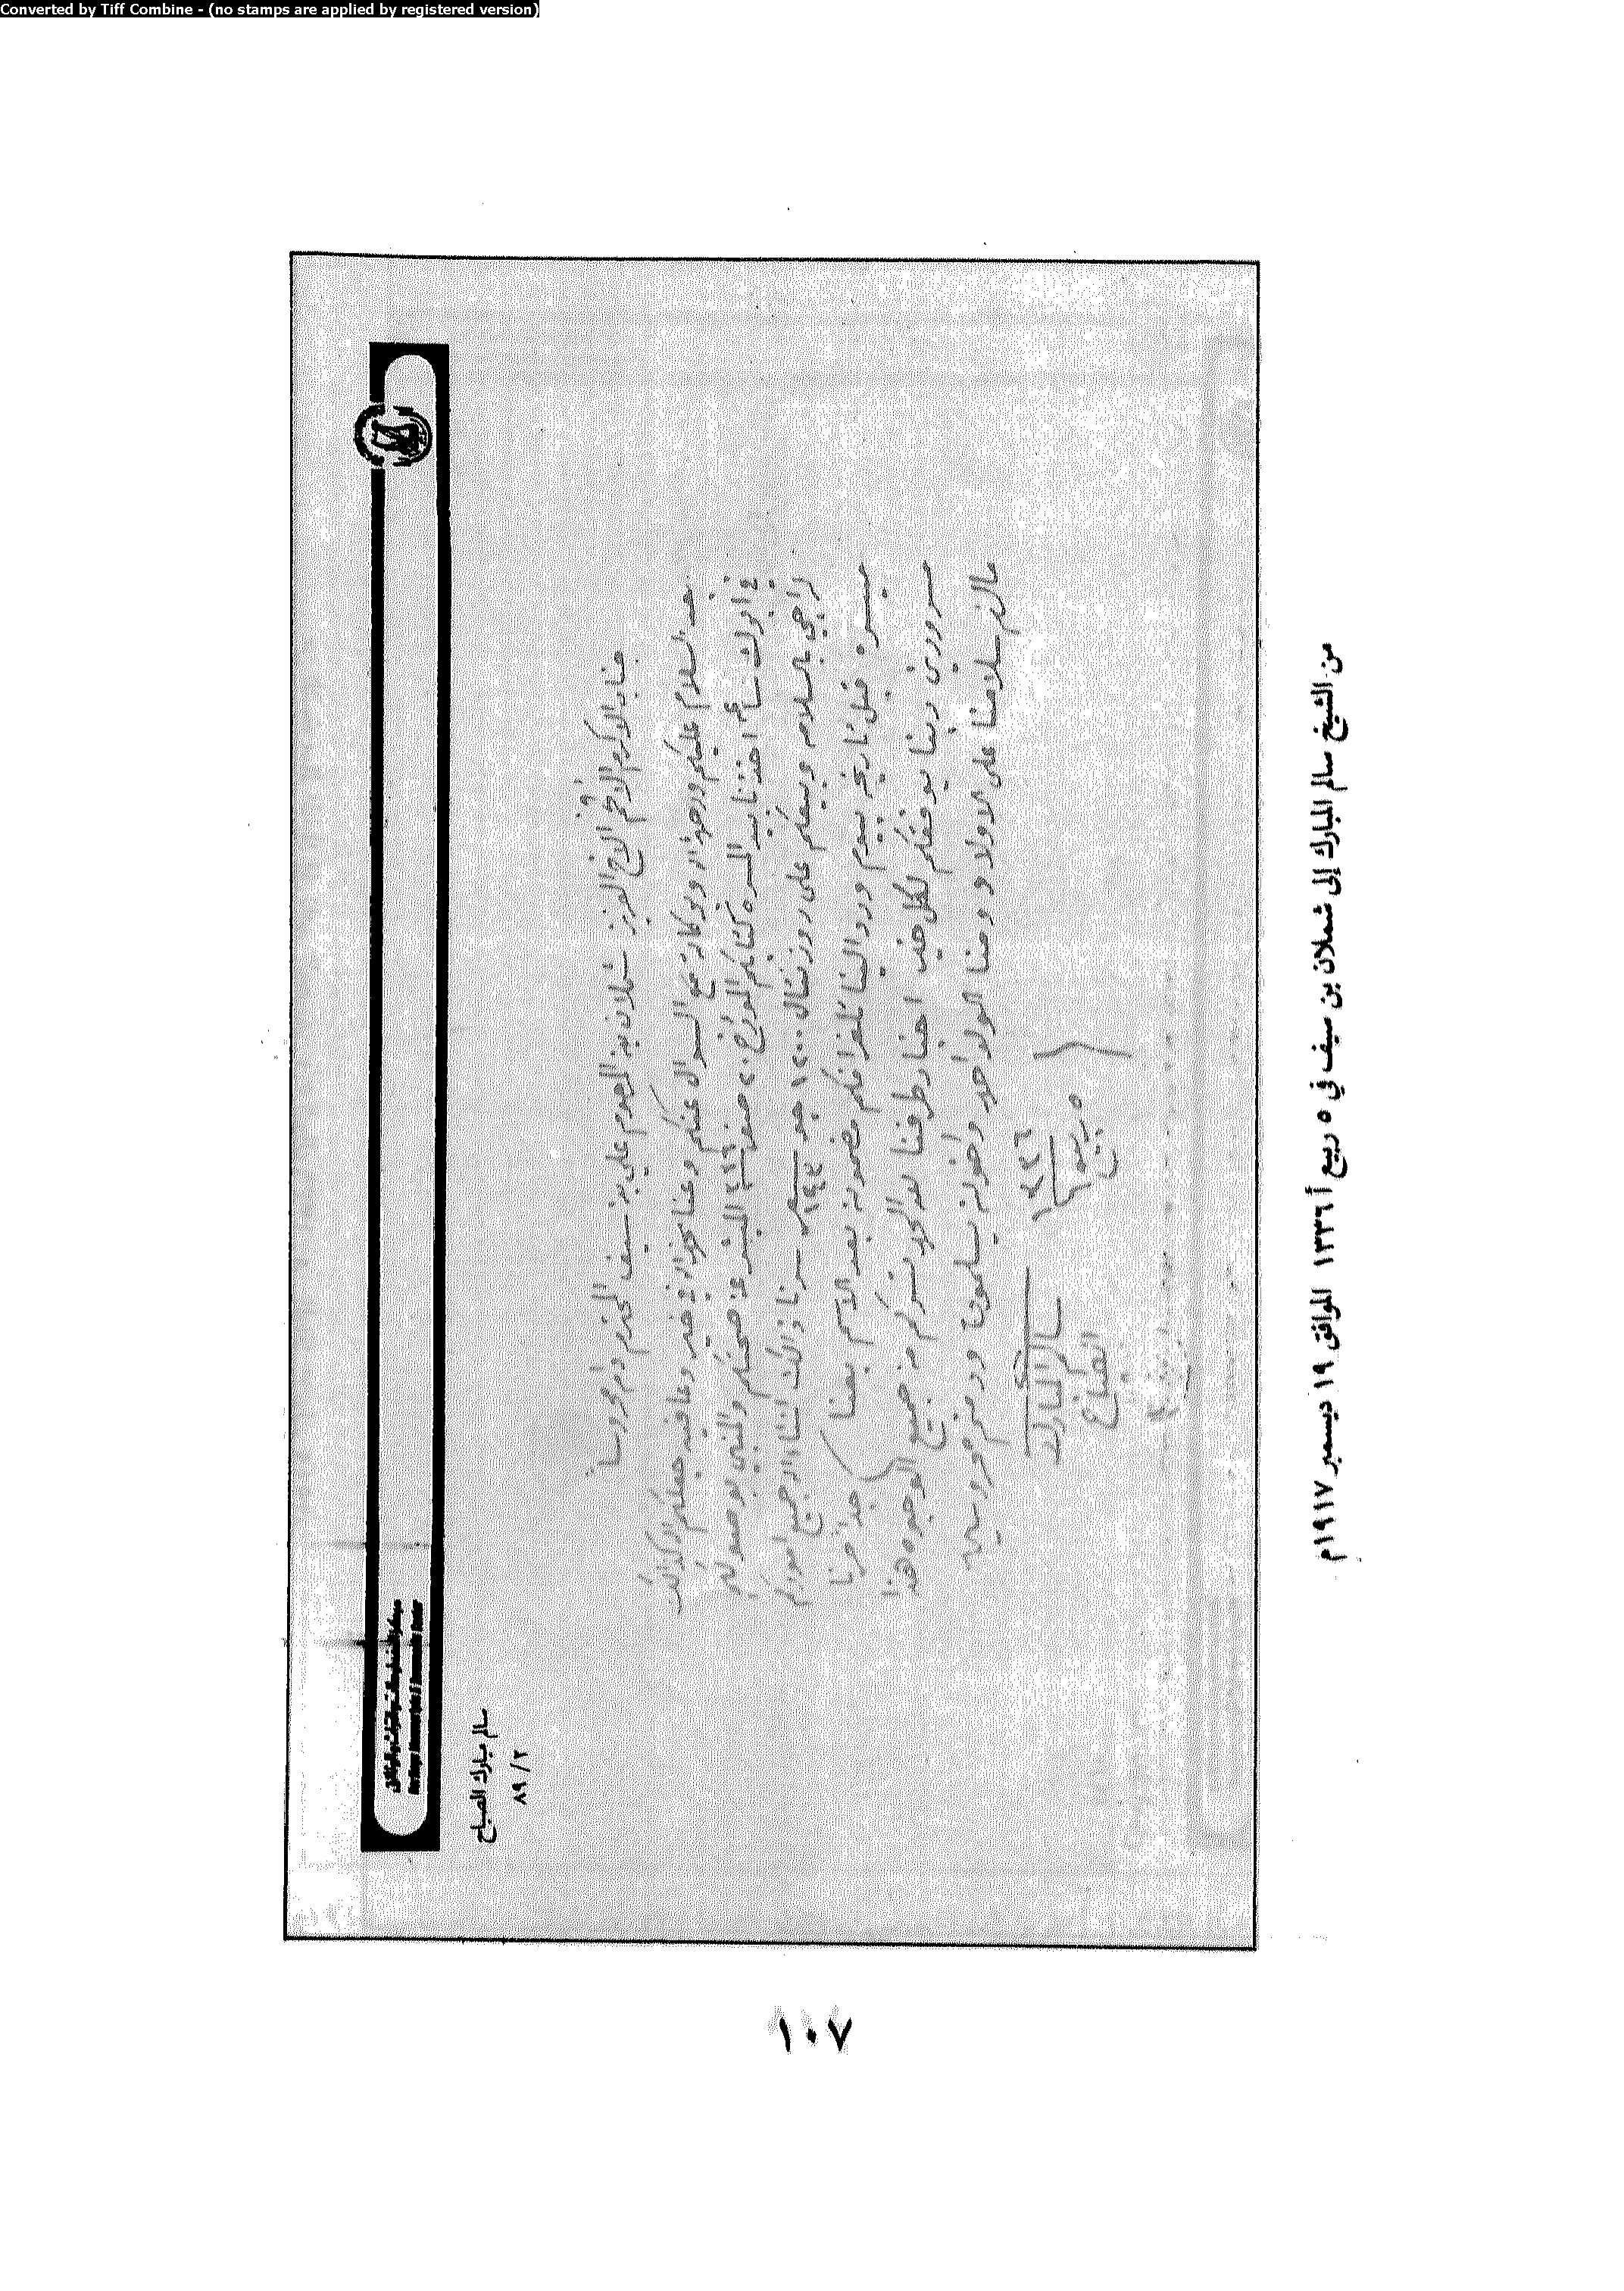 Converted by Tiff Combine - (no stamps are applied by registered version)
سالم مبارك الصباح
٨٩ / ٢
جناب الاكرم الافخم الاخ العزيز شملان بن المرحوم علي بن سيف المحترم دام محروسا
بعد السلام عليكم ورحمة الله وبركاته مع السوال عنكم وعنا بحمد الله في خير وعافيه جعلكم الله كذلك
في ابرك اخذنا بيد المسره كتابكم المورخ ٢٠ صفر المبشر عن صحتكم والمنبي بوصولكم
راجي بالسلام وبيعكم على روزنتال ١٢٠٠ سرنا ذالك انشاء الله جميع اموركم
ميسره قبل تاريخه بيوم ورد الينا تلغرافكم مضمونه بعد الاسم بعنا جدا صرنا
مسرورين ربنا يوفقكم لكل خير اخبار طرفنا لله الحمد تسركم من جميع الوجوه هذا
مالزم سلامنا على الاولاد ومنا الولد احمد واخوانه يسلمون ودمتم محروسين
٥ ربيع ١
١٣٣٦
سالم المبارك
الصباح
من الشيخ سالم المبارك إلى شملان بن سيف في ٥ ربيع أ ١٣٣٦ الموافق ١٩ ديسمبر ١٩١٧م
١٠٧